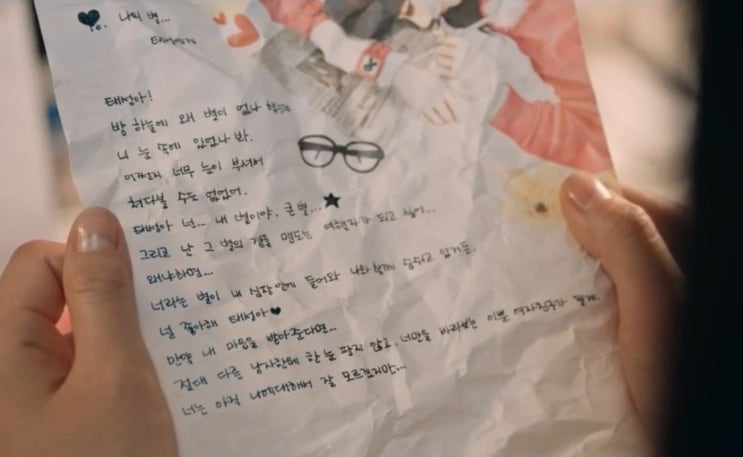 To. 나의 별...
태성에게
태성아!
밤 하늘에 왜 별이 없나 했는데
니 눈 속에 있었나 봐.
어쩐지 너무 눈이 부셔서
쳐다볼 수도 없었어.
태성아 넌... 내 별이야. 큰 별...★
그리고 난 그 별의 곁을 맴도는 여행자가 되고 싶어...
왜냐하면...
너라는 별이 내 심장안에 들어와 나와함께 숨쉬고 있거든.
널 좋아해 태성아♥
만약 내 마음을 받아준다면...
절대 다른 남자한테 한눈 팔지 않고, 너만을 바라보는 이쁜 여자친구가 될게.
너는 아직 나에대해서 잘 모르겠지만...